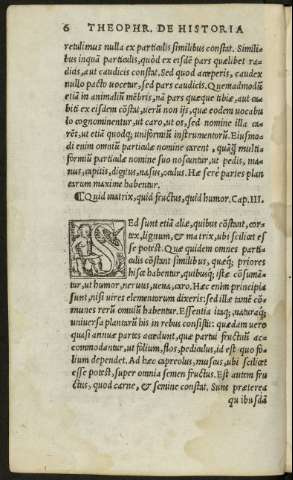 6 THEOPHR. DE HISTORIA
retulimus nulla ex particulis similibus constat. Simili⸗
bus inquā particulis, quòd ex eisdē pars quælibet ra⸗
dias, aut caudicis constat. Sed quod acceperis, caudex
nullo pacto uocetur, sed pars caudicis. Quemadmodū
etiā in animaliū mēbris, nā pars quæque tibiæ, aut cu⸗
biti ex eisdem cōstat, uerū non ijs, quæ eodem uocabu
lo cognominentur, ut caro, ut os, sed nomine illa ca⸗
rēt, ut etiā quodq; uniformiū instrumentorū. Eiusmo⸗
di enim omniū particulæ nomine carent, quāq̄ multi⸗
formiū particulæ nomine suo noscuntur, ut pedis, ma⸗
nus, capitis, digitus, nasus, oculus. Hæ ferè partes plan
tarum maxime habentur.
¶Quid matrix, quid fructus, quid humor. Cap. III.
SEd sunt etiā aliæ, quibus cōstant, cor⸗
tex, lignum, & matrix, ubi scilicet es⸗
se potest. Quæ quidem omnes parti⸗
culis cōstant similibus, quæq; priores
hisce habentur, quibusq; istæ cōsuman⸗
tur, ut humor, neruus, uena, caro. Hæc enim principia
sunt, nisi uires elementorum dixeris: sed illæ tunc cō⸗
munes rerū omniū habentur. Essentia itaq; naturaq;
uniuersa plantarū his in rebus consistit: quædam uero
quasi annuæ partes accedunt, quæ partui fructuū ac⸗
commodantur, ut folium, flos, pediculus, id est quo fo⸗
lium dependet. Ad hæc capreolus, muscus, ubi scilicet
esse potest, super omnia semen fructus. Est autem fru
ctus, quod carne, & semine constat. Sunt præterea
quibusdā